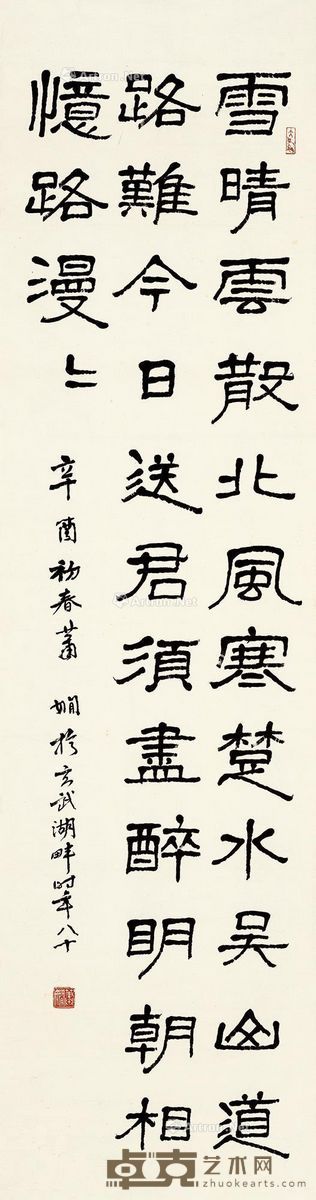 雪晴雲散北風寒楚水吳山道
路難今日送君須盡醉明朝相
憶路漫〻
辛酉初春蕭嫻於玄武湖畔時年八十
卓克艺术网
www.zhuokearts.com
Artron.Net